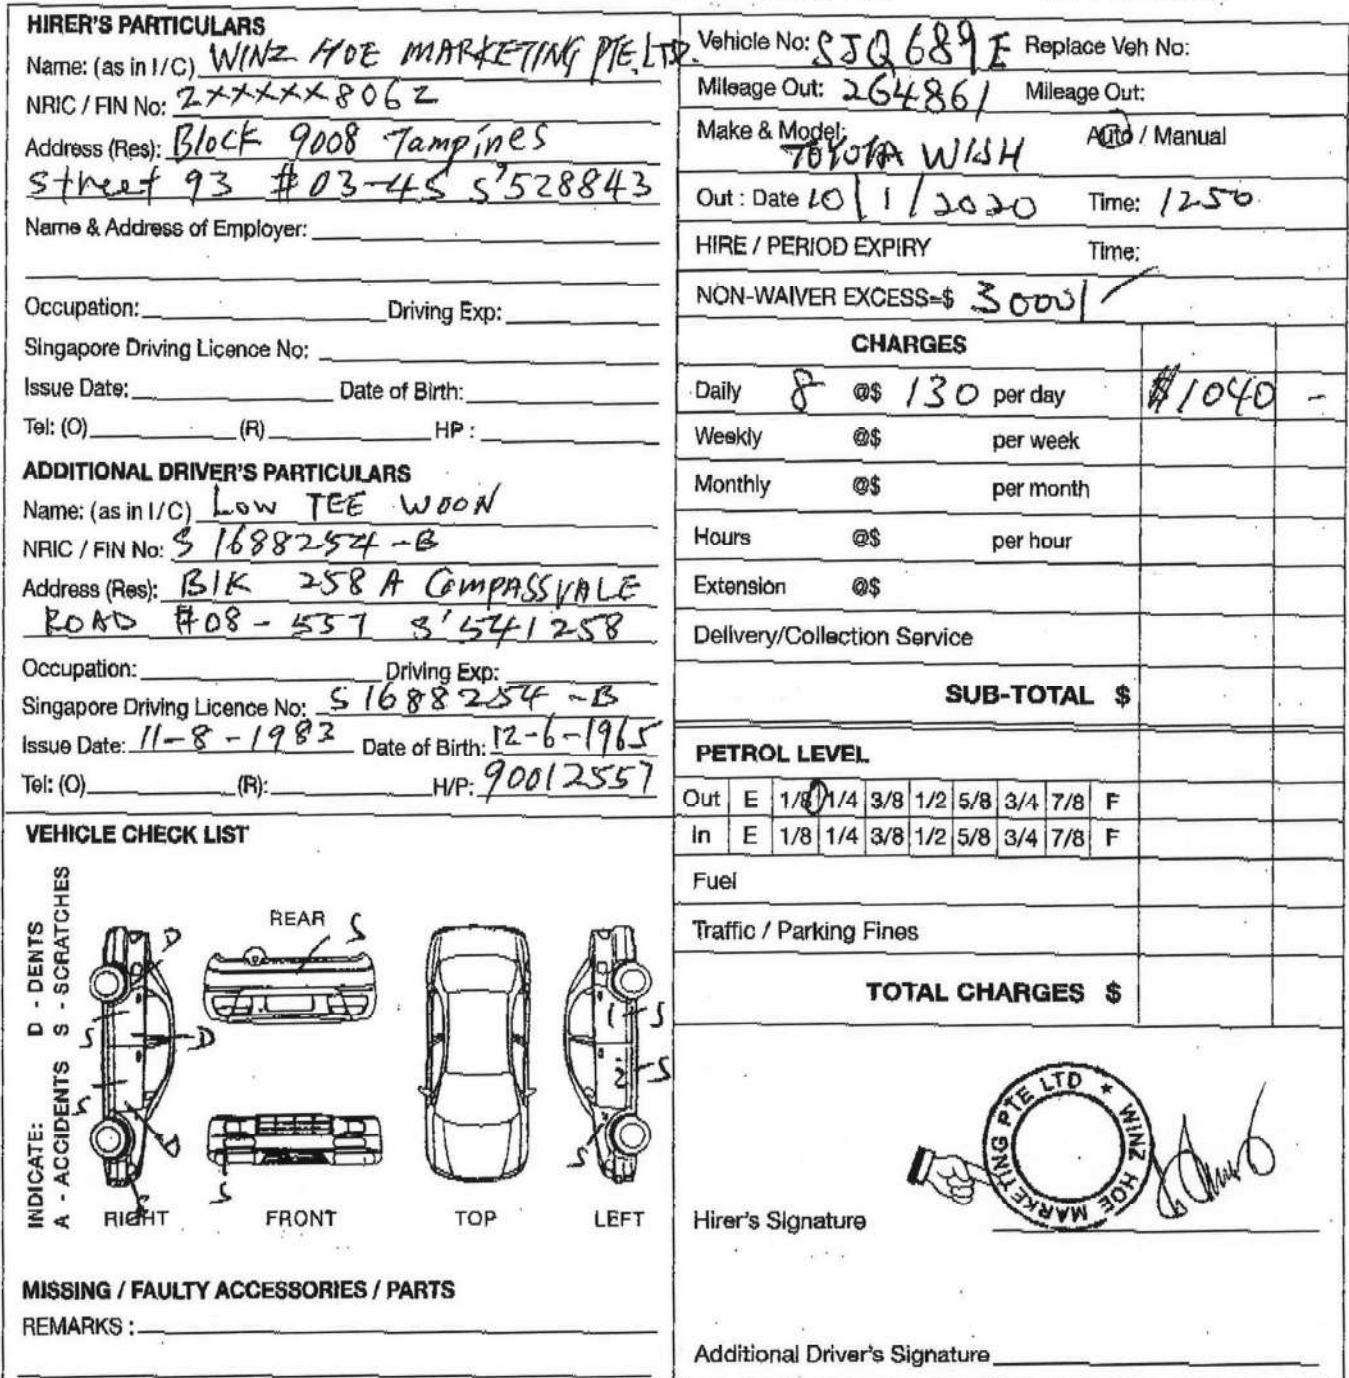 HIRER'S PARTICULARS
Name: (as in I/C) WINZ HOE MARKETING PTE. LTD.
NRIC / FIN No: 2XXXXX806Z
Address (Res): Block 9008 Tampines
street 93 #03-45 S'528843
Name & Address of Employer:
Occupation: Driving Exp:
Singapore Driving Licence No:
Issue Date: Date of Birth:
Tel: (O) (R) HP :
ADDITIONAL DRIVER'S PARTICULARS
Name: (as in I/C) LOW TEE WOON
NRIC / FIN No: S 1688254-B
Address (Res): Blk 258 A COMPASSVALE
ROAD #08-557 S'541258
Occupation: Driving Exp:
Singapore Driving Licence No: S 1688254-B
Issue Date: 11-8-1983 Date of Birth: 12-6-1965
Tel: (O) (R): H/P: 90012557
VEHICLE CHECK LIST
INDICATE: D - DENTS
A - ACCIDENTS S - SCRATCHES
REAR S
D
S D
S D
S
S
S
1 S
2 S
S
RIGHT FRONT TOP LEFT
MISSING / FAULTY ACCESSORIES / PARTS
REMARKS :
Vehicle No: SJQ 689 E Replace Veh No:
Mileage Out: 264861 Mileage Out:
Make & Model: TOYOTA WISH Auto / Manual
Out : Date 10/1/2020 Time: 1250
HIRE / PERIOD EXPIRY Time:
NON-WAIVER EXCESS=$ 3000/
CHARGES
Daily 8 @$ 130 per day $1040 -
Weekly @$ per week
Monthly @$ per month
Hours @$ per hour
Extension @$
Delivery/Collection Service
SUB-TOTAL $
PETROL LEVEL
Out E 1/8 1/4 3/8 1/2 5/8 3/4 7/8 F
In E 1/8 1/4 3/8 1/2 5/8 3/4 7/8 F
Fuel
Traffic / Parking Fines
TOTAL CHARGES $
WINZ HOE MARKETING PTE LTD ★
Hirer's Signature
Additional Driver's Signature